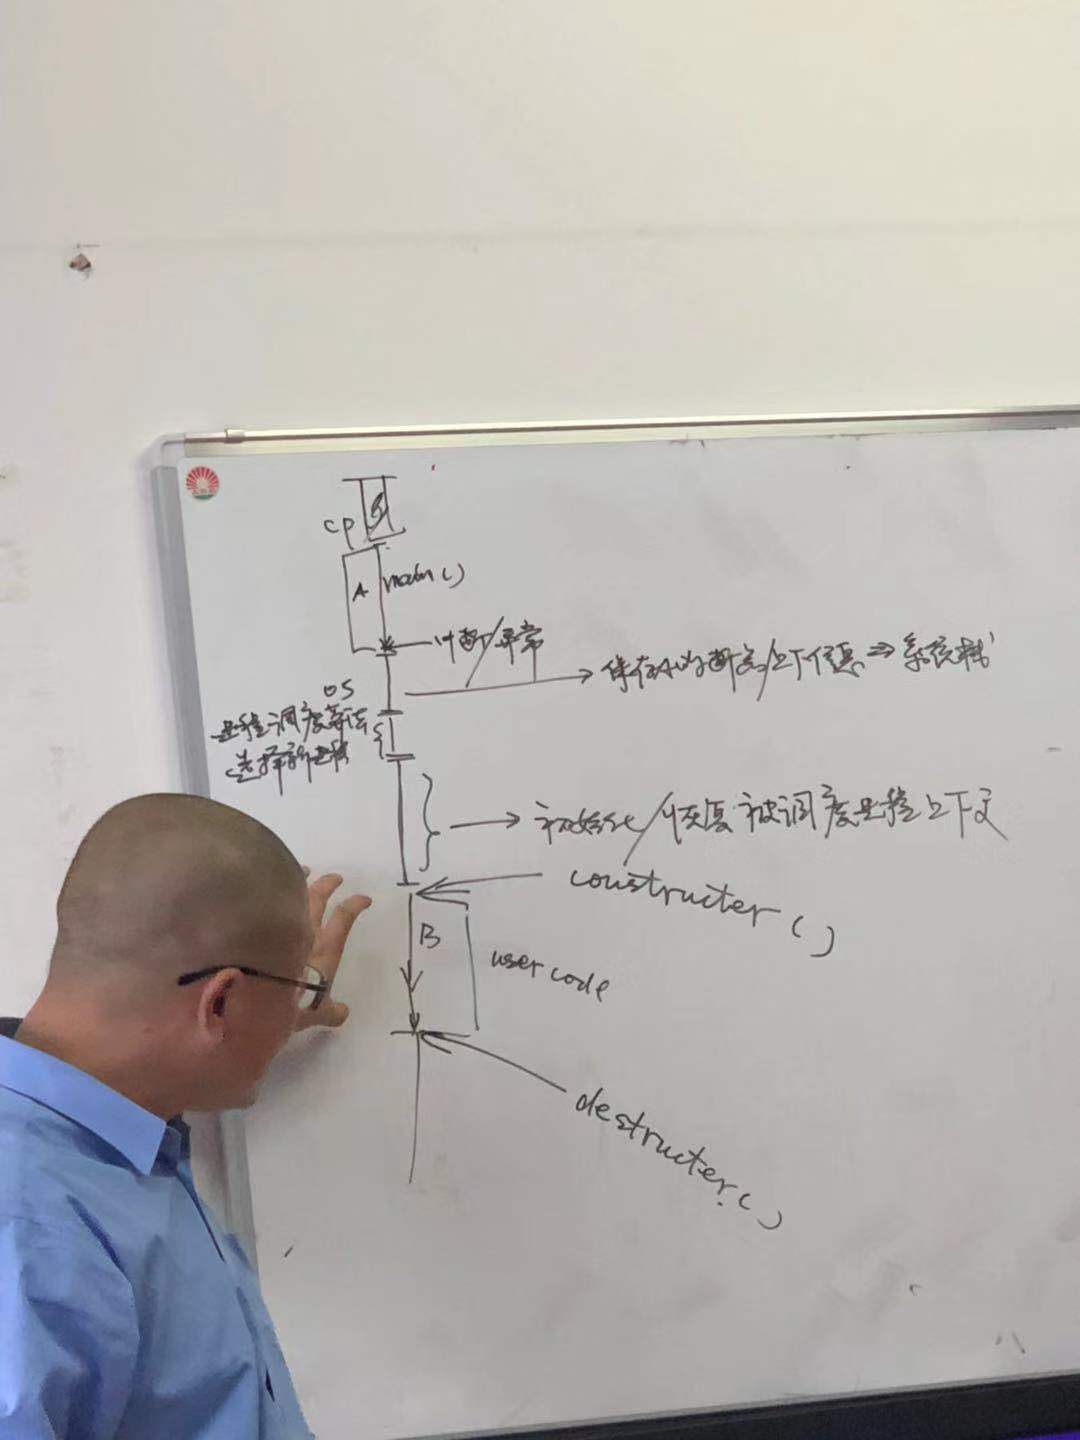 cp
A main()
中断/异常
保存A的断点/上下信息⇒系统栈
OS
进程调度算法
选择新进程
初始化/恢复被调度进程上下文
constructer()
B
user code
destructer()